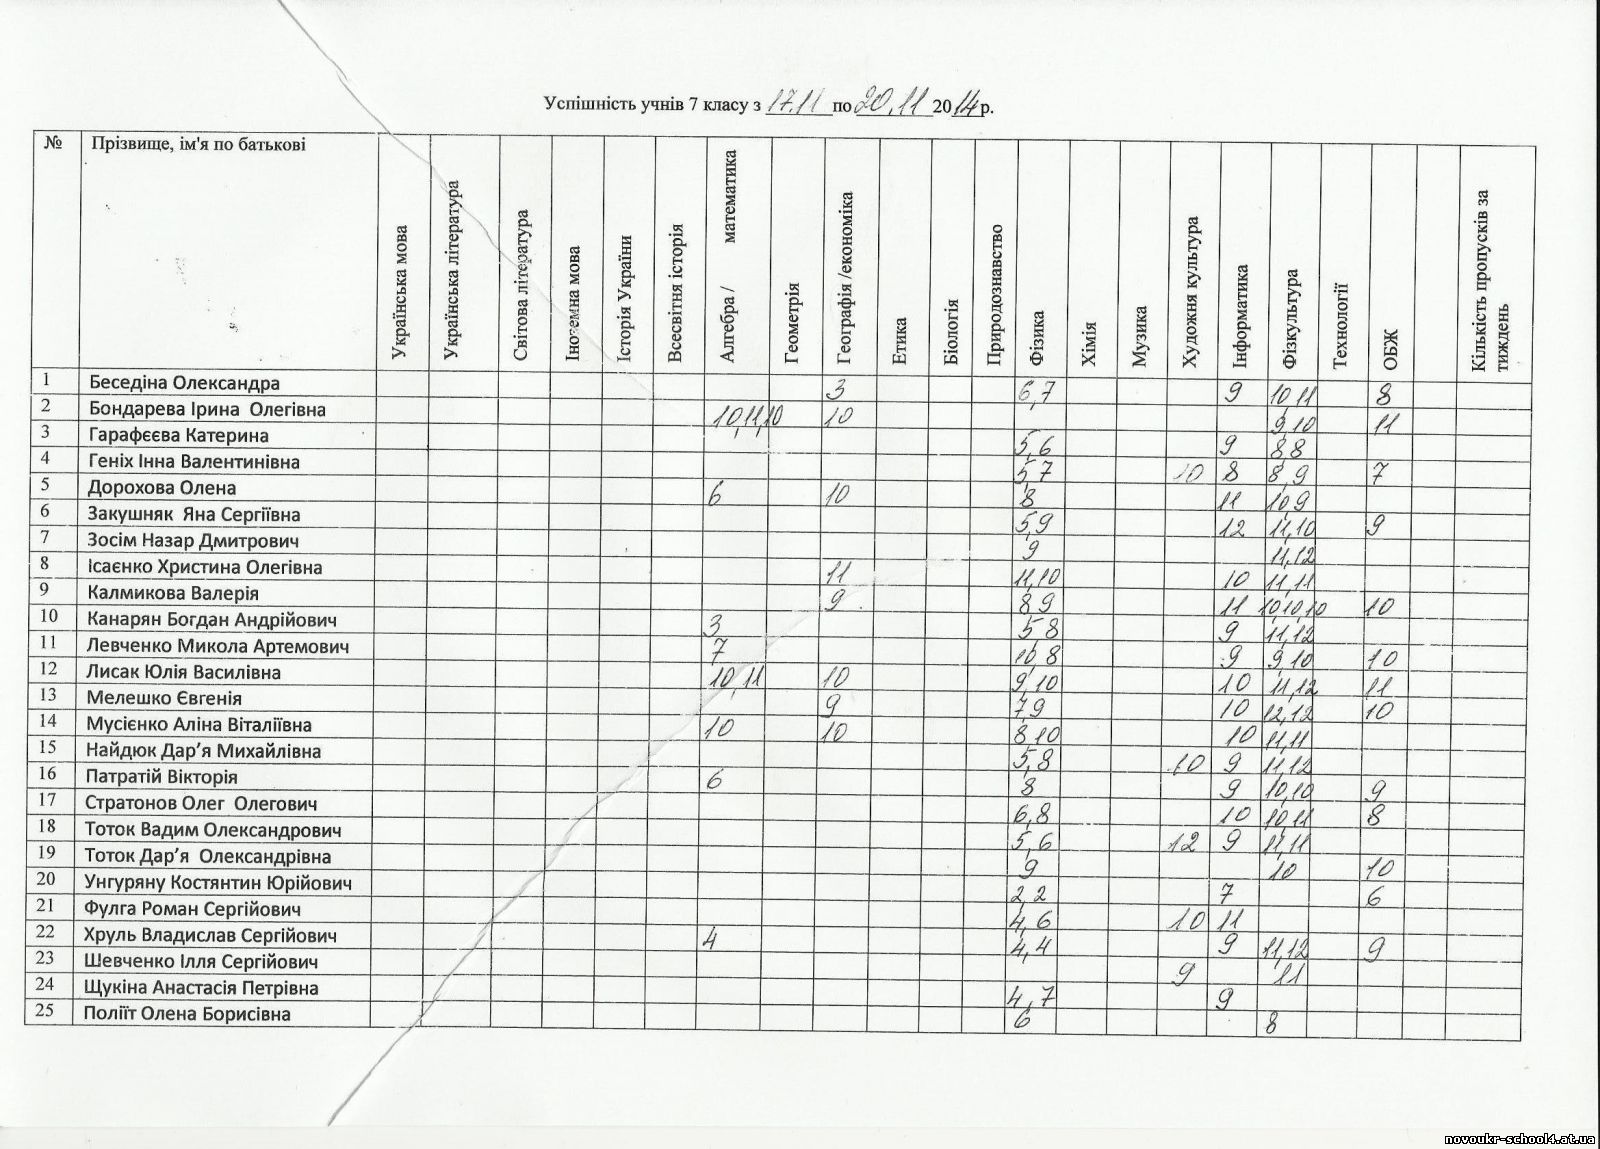 Успішність учнів 7 класу з 17.11 по 20.11 2014р.
№ Прізвище, ім'я по батькові Українська мова Українська література Світова література Іноземна мова Історія України Всесвітня історія Алгебра / математика Геометрія Географія /економіка Етика Біологія Природознавство Фізика Хімія Музика Художня культура Інформатика Фізкультура Технології ОБЖ Кількість пропусків за тиждень
1 Беседіна Олександра 3 6,7 9 10,11 8
2 Бондарева Ірина Олегівна 10,11,10 10 9,10 11
3 Гарафєєва Катерина 5,6 9 8,8
4 Геніх Інна Валентинівна 5,7 10 8 8,9 7
5 Дорохова Олена 6 10 8 11 10,9
6 Закушняк Яна Сергіївна 5,9 12 11,10 9
7 Зосім Назар Дмитрович 9 11,12
8 Ісаєнко Христина Олегівна 11 11,10 10 11,11
9 Калмикова Валерія 9 8 9 11 10,10,10 10
10 Канарян Богдан Андрійович 3 5 8 9 11,12
11 Левченко Микола Артемович 7 10,8 9 9,10 10
12 Лисак Юлія Василівна 10,11 10 9,10 10 11,12 11
13 Мелешко Євгенія 9 7,9 10 12,12 10
14 Мусієнко Аліна Віталіївна 10 10 8 10 10 11,11
15 Найдюк Дар’я Михайлівна 5,8 10 9 11,12
16 Патратій Вікторія 6 8 9 10,10 9
17 Стратонов Олег Олегович 6,8 10 10,11 8
18 Тоток Вадим Олександрович 5,6 12 9 11,11
19 Тоток Дар’я Олександрівна 9 10 10
20 Унгуряну Костянтин Юрійович 2,2 7 6
21 Фулга Роман Сергійович 4,6 10 11
22 Хруль Владислав Сергійович 4 4,4 9 11,12 9
23 Шевченко Ілля Сергійович 9 11
24 Щукіна Анастасія Петрівна 4,7 9
25 Поліїт Олена Борисівна 6 8
novoukr-school4.at.ua